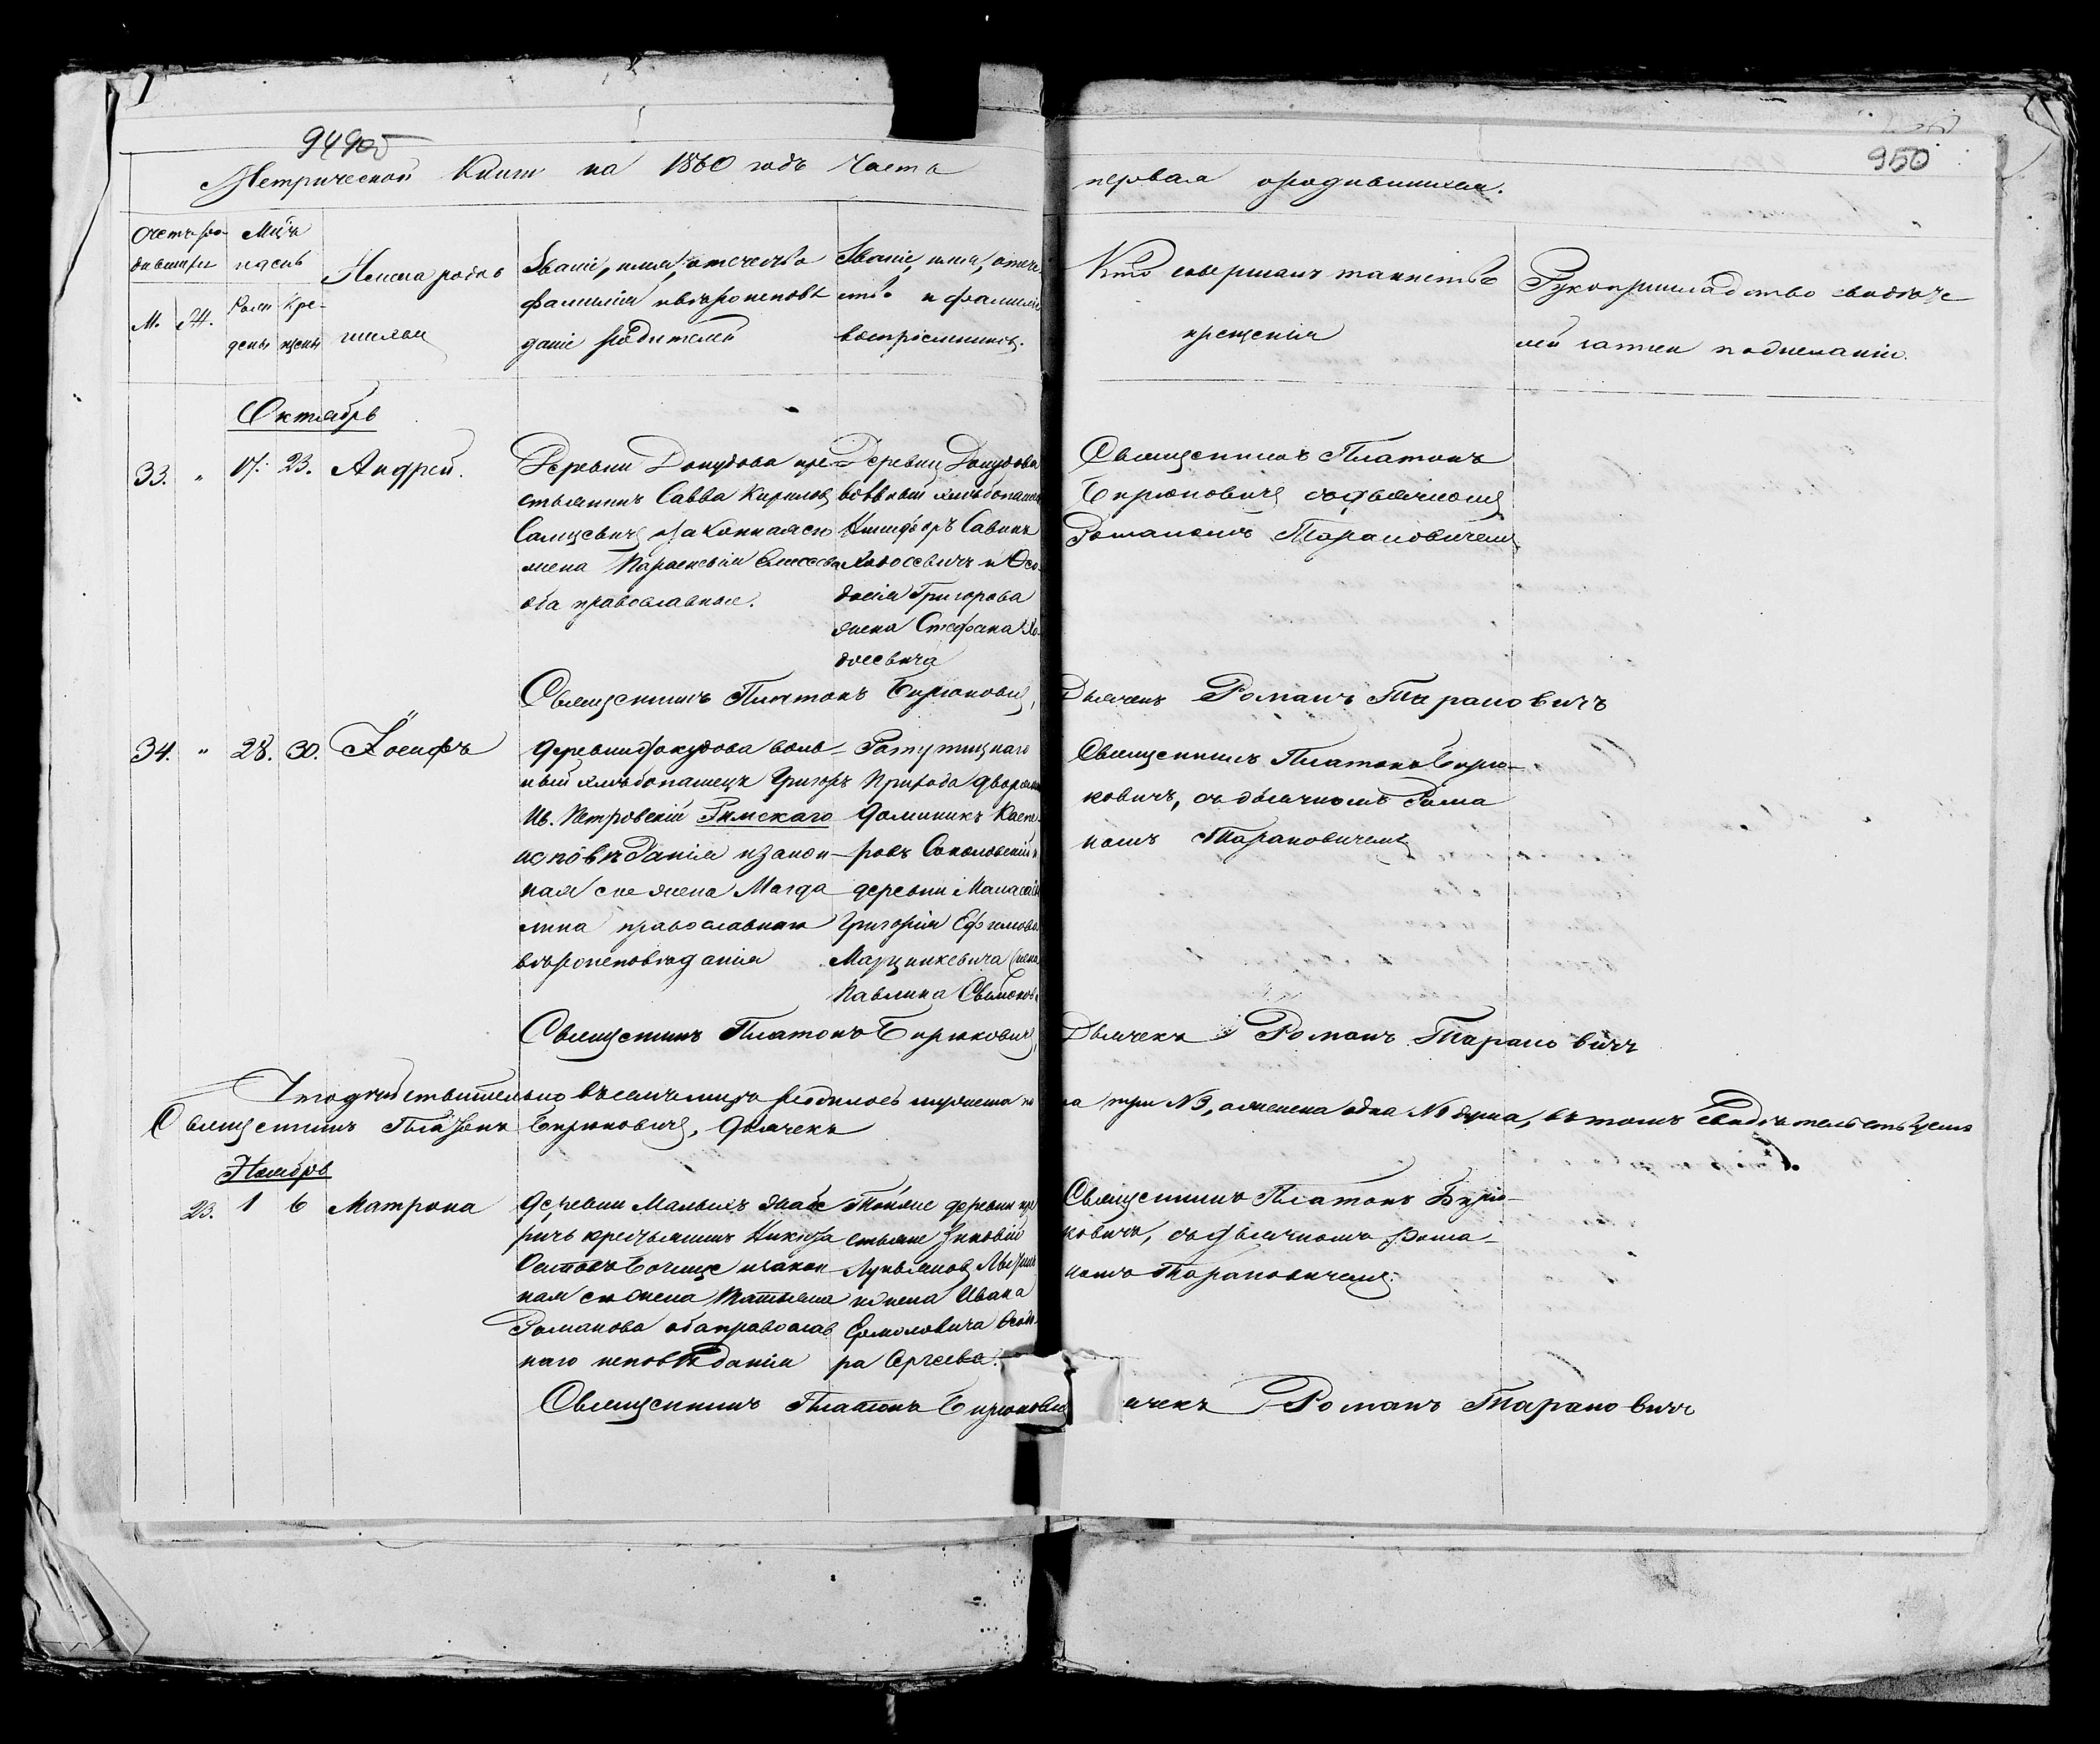 94905
950
Метрической Книги на 1860 годъ Часть первая о родившихся.
Счетъ ро-
дившихся
М. Ж.
Мѣсяцъ
и день
Рож- Кре-
денія щенія
Имена родив
шихся
Званіе, имя, отечество
фамилія и вѣроисповѣ
даніе родителей
Званіе, имя, отече-
ство и фамилія
воспріемниковъ.
Кто совершалъ таинство
крещенія
Рукоприкладство свидѣте
лей записи по желанію.
Октябрь
33. " 17. 23. Андрей.
Деревни Докудова кре-
стьянинъ Савва Кириловъ
и законная его
жена Параскевія Елисеева
оба православные.
Деревни Докудова
вольный хлѣбопашецъ
Никифоръ Савинъ
Ходосевичъ и Ѳео-
досія Григорова
жена Стефана Хо-
досевича
Священникъ Платонъ
Бирюковичъ съ дьячкомъ
Романомъ Тарановичемъ
Священникъ Платонъ Бирюковичъ, Дьячекъ Романъ Тарановичъ
34. " 28. 30. Іосифъ
Деревни Докудова воль
ный хлѣбопашецъ Григорь
Ив. Петровскій Римскаго
исповѣданія и закон-
ная его жена Магда
лина православнаго
вѣроисповѣданія
прихода дворянинъ
Доминикъ Каспе-
ровъ Соколовскій и
деревни
Григорія Ефимова
Марцинкевича жена
Павлина
Священникъ Платонъ Бирю-
ковичъ, съ дьячкомъ Рома
номъ Тарановичемъ
Священникъ Платонъ Бирюковичъ, Дьячекъ Романъ Тарановичъ
Что дѣйствительно въ семъ мѣсяцѣ родилось мужеска пола три №3, а женска одна №1 душа, въ томъ свидѣтельствуемъ
Священникъ Платонъ Бирюковичъ, Дьячекъ
Ноябрь
23. 1 6 Матрона
Деревни Малыхъ Жабе
ричь крестьянинъ Никита
и закон
ная его жена Татьяна
Романова оба православ
наго исповѣданія
Тойже деревни кре
стьяне Зиновій
Лукьяновъ
и жена Ивана
Ермоловича Ѳеодо
ра Сергеева.
Священникъ Платонъ Бирю-
ковичъ, съ дьячкомъ Рома-
номъ Тарановичемъ.
Священникъ Платонъ Бирюковичъ Дьячекъ Романъ Тарановичъ